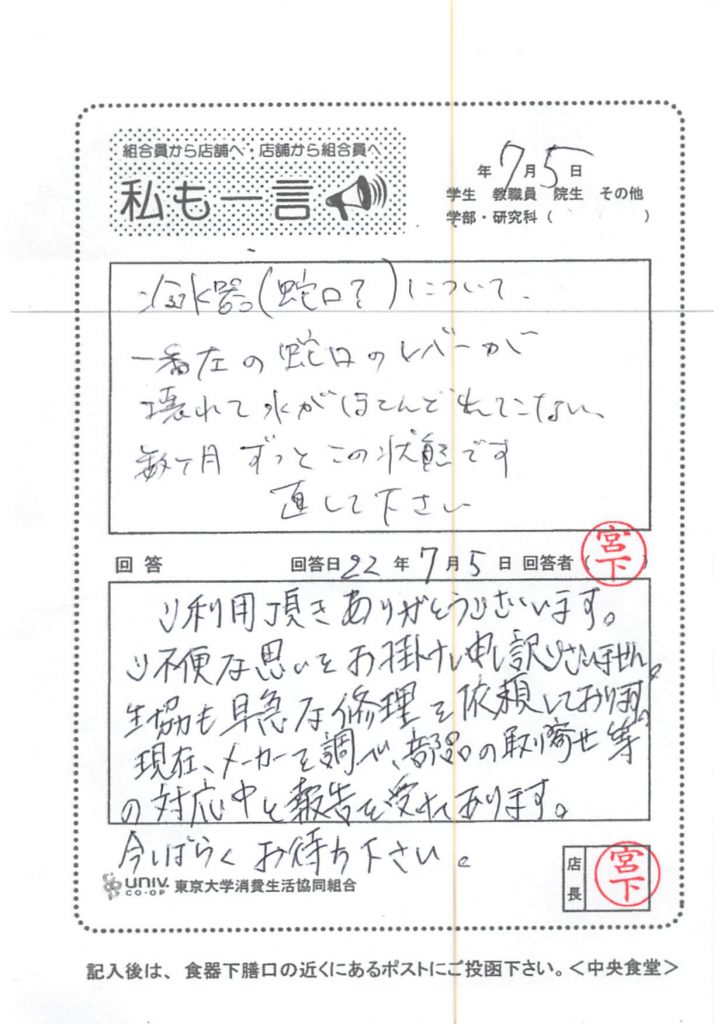 組合員から店舗へ・店舗から組合員へ
私も一言
年 7月 5日
学生 教職員 院生 その他
学部・研究科( )
冷水器(蛇口?)について、
一番左の蛇口のレバーが
壊れて水がほとんど出てこない、
数ヶ月ずっとこの状態です
直して下さい
回答 回答日 22年 7月 5日 回答者(宮下)
ご利用頂きありがとうございます。
ご不便な思いをお掛けし申し訳ございません。
生協も早急な修理を依頼しております。
現在、メーカーを調べ、部品の取り寄せ等
の対応中と報告を受けております。
今しばらくお待ち下さい。
univ. CO-OP 東京大学消費生活協同組合
店長 宮下
記入後は、食器下膳口の近くにあるポストにご投函下さい。<中央食堂>